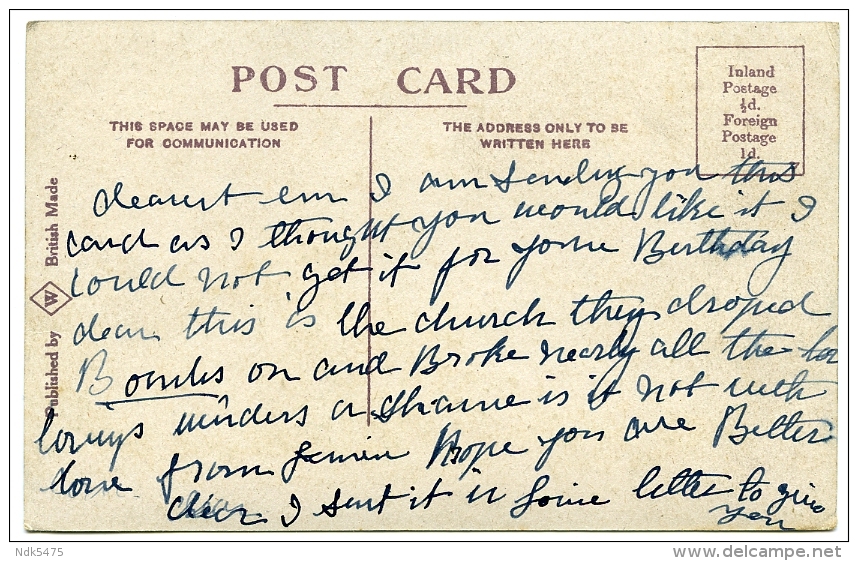 POST CARD
THIS SPACE MAY BE USED
FOR COMMUNICATION
THE ADDRESS ONLY TO BE
WRITTEN HERE
Inland
Postage
½d.
Foreign
Postage
1d.
Published by W British Made
dearest em I am sending you this
card as I thought you would like it I
Could not get it for youre Birthday
dear this is the church they droped
Bombs on and Broke nearly all the
winders a shame is it not with
love from Hope you are Better
dear I sent it in letter to give
you
Ndk5475
delcampe.net